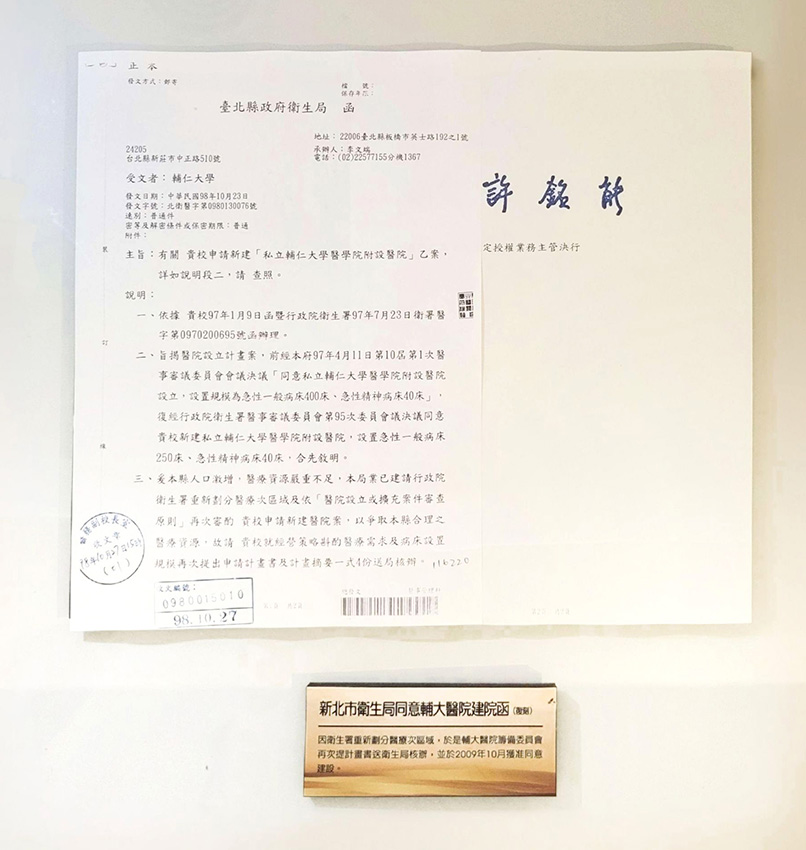 正本
發文方式：郵寄
檔　號：
保存年限：
臺北縣政府衛生局　函
地址：22006臺北縣板橋市英士路192之1號
承辦人：李文瑞
電話：(02)22577155分機1367
24205
台北縣新莊市中正路510號
受文者：輔仁大學
發文日期：中華民國98年10月23日
發文字號：北衛醫字第0980130076號
速別：普通件
密等及解密條件或保密期限：普通
附件：
主旨：有關 貴校申請新建「私立輔仁大學醫學院附設醫院」乙案，
詳如說明段二，請 查照。
說明：
一、依據 貴校97年1月9日函暨行政院衛生署97年7月23日衛署醫
字第0970200695號函辦理。
二、旨揭醫院設立計畫案，前經本府97年4月11日第10屆第1次醫
事審議委員會會議決議「同意私立輔仁大學醫學院附設醫院
設立，設置規模為急性一般病床400床、急性精神病床40床」，
復經行政院衛生署醫事審議委員會第95次委員會議決議同意
貴校新建私立輔仁大學醫學院附設醫院，設置急性一般病床
250床、急性精神病床40床，合先敘明。
三、爰本縣人口激增，醫療資源嚴重不足，本局業已建請行政院
衛生署重新劃分醫療次區域及依「醫院設立或擴充案件審查
原則」再次審酌 貴校申請新建醫院案，以爭取本縣合理之
醫療資源，故請 貴校就經營策略斟酌醫療需求及病床設置
規模再次提出申請計畫書及計畫摘要一式4份送局核辦。
116220
裝
訂
線
收文章
98年10月27日
收文編號：
0980015010
98.10.27
許銘能
定授權業務主管決行
新北市衛生局同意輔大醫院建院函(複刻)
因衛生署重新劃分醫療次區域，於是輔大醫院籌備委員會
再次提計畫書送衛生局核辦，並於2009年10月獲准同意
建設。